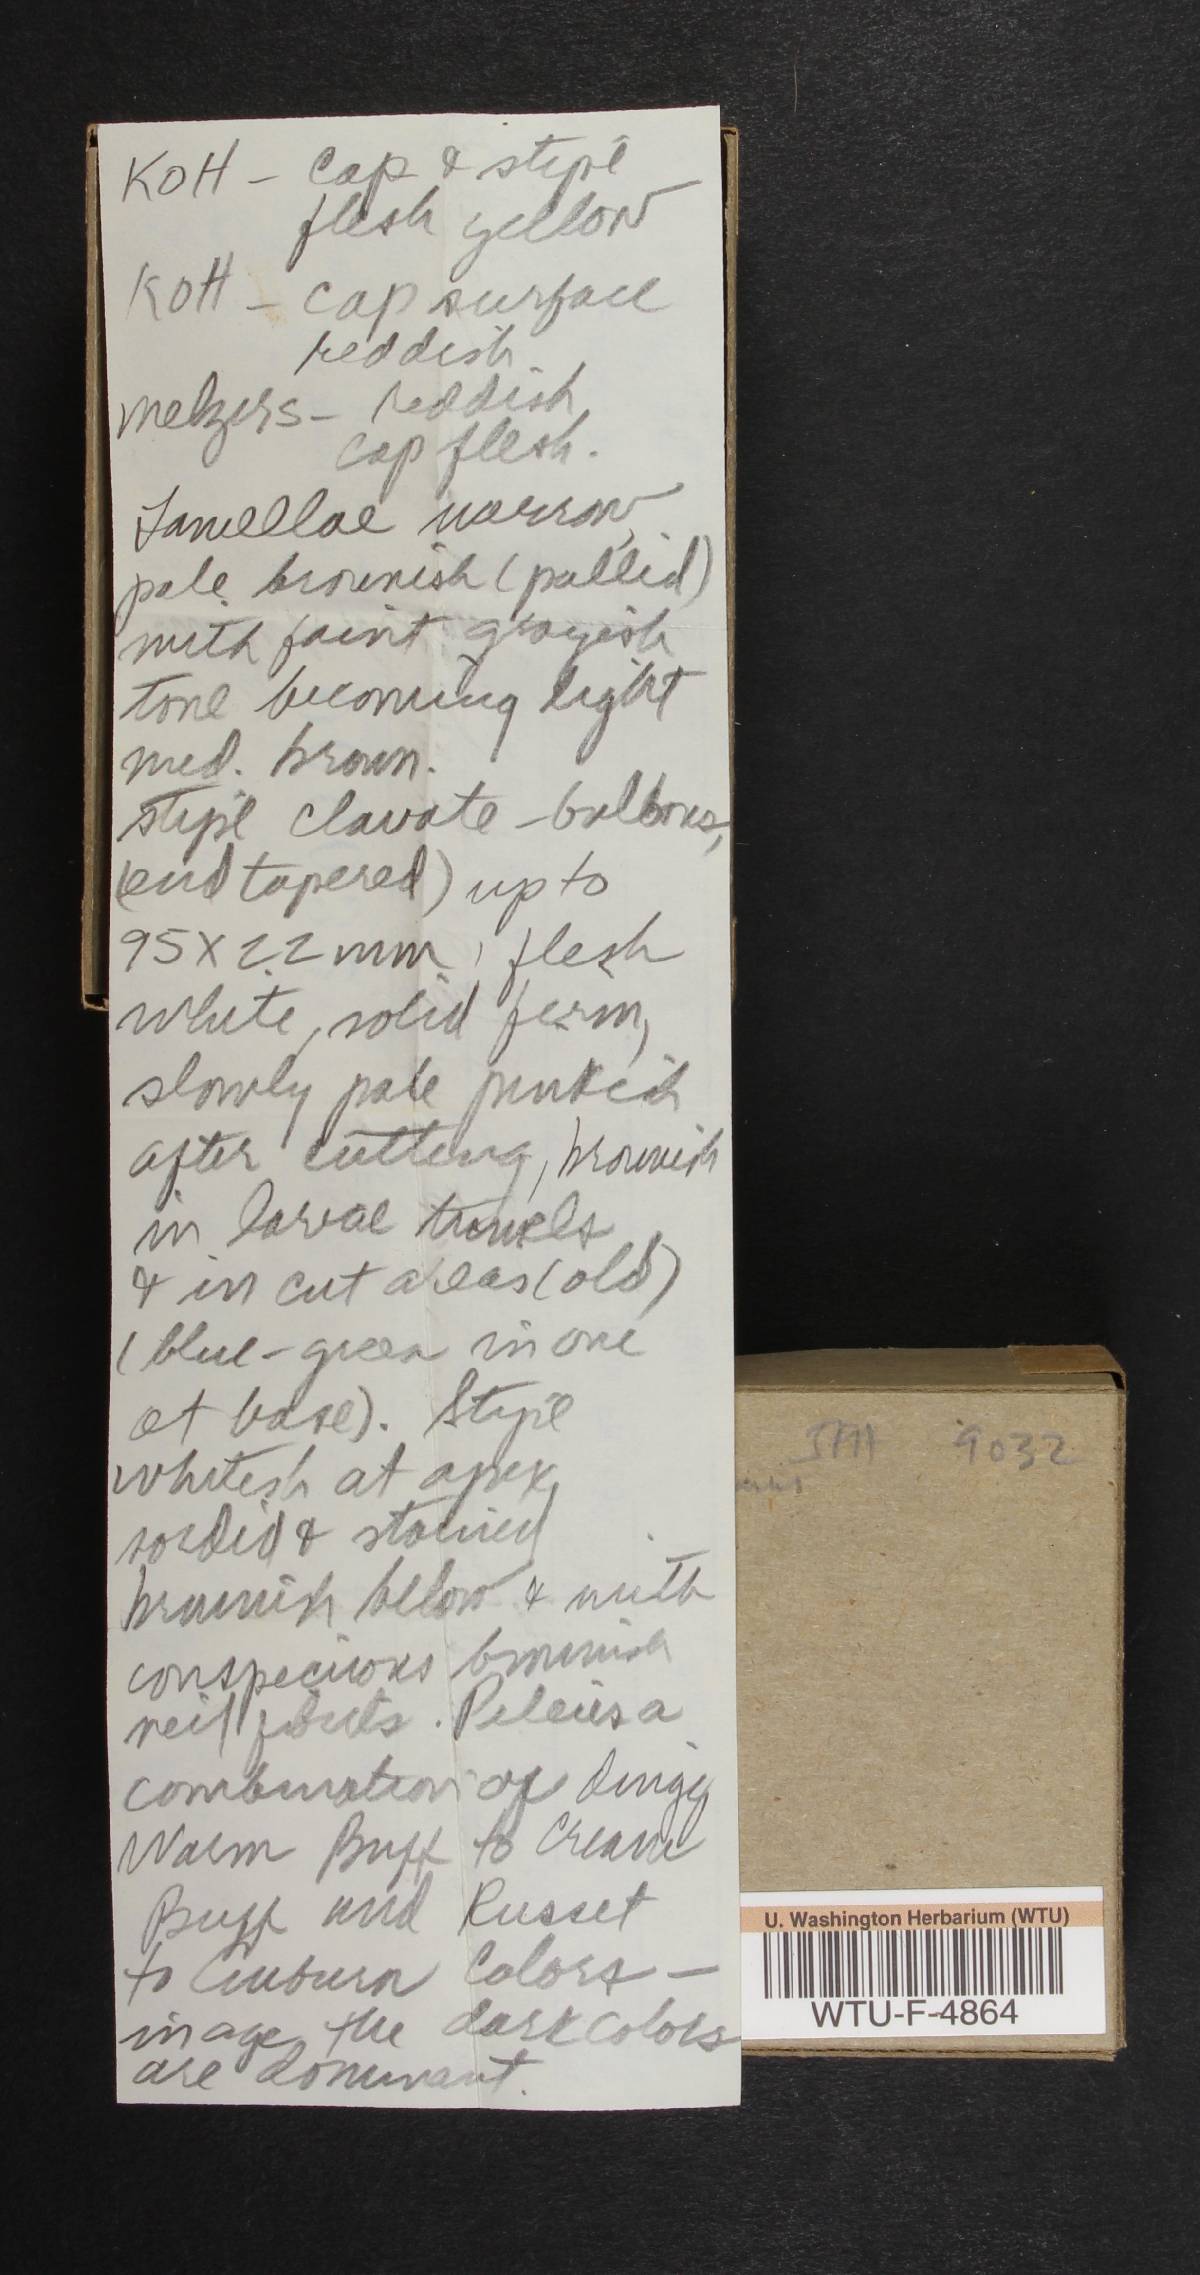 KOH - Cap & stipe
flesh yellow
KOH - cap surface
reddish
melzers - reddish
cap flesh.
Lamellae narrow,
pale brownish (pallid)
with faint grayish
tone becoming light
med. brown.
stipe clavate-bulbous,
(end tapered) up to
95 x 22 mm, flesh
white, solid firm,
slowly pale pinkish
after cutting, brownish
in larval tunnels
& in cut areas (old)
(blue-green in one
at base). Stipe
whitish at apex,
sordid & stained
brownish below & with
conspicuous brownish
veil fibrils. Pileus a
combination of dingy
Warm Buff to Cream
Buff and Russet
to Auburn Colors -
in age, the dark colors
are dominant.
9032
U. Washington Herbarium (WTU)
WTU-F-4864